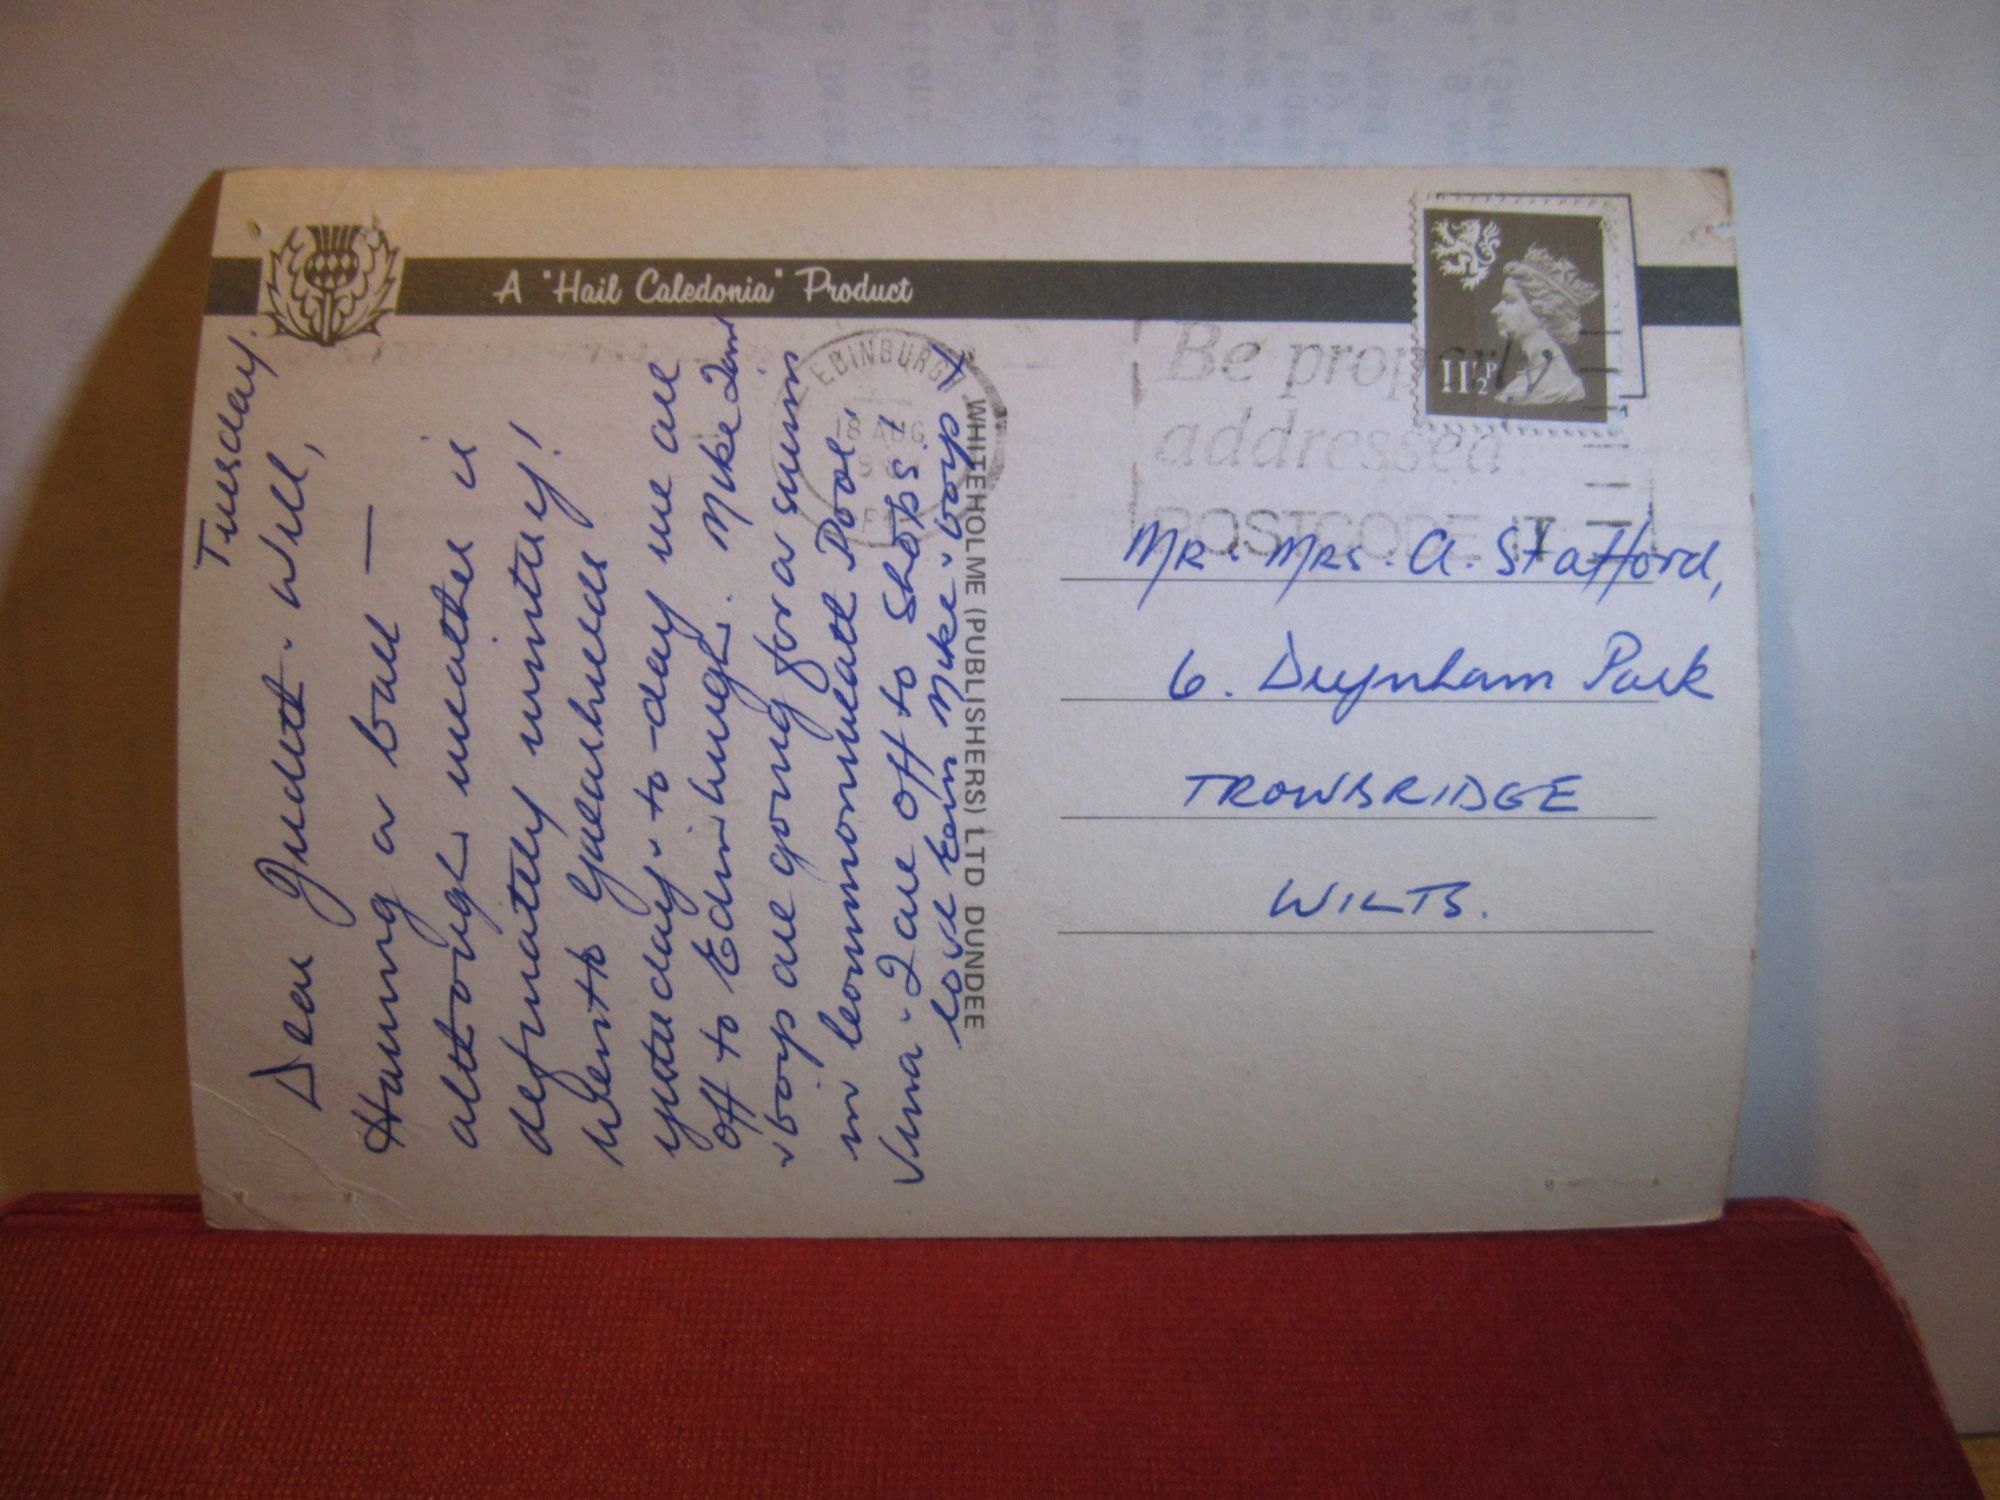 A "Hail Caledonia" Product
Tuesday.
Dear Judith. Will,
Having a ball —
although weather is
definately wintry!
Went to
yesterday. to-day we are
off to Edinburgh. Mike
boys are going for a swim
in Commonwealth Pool
2 are off to shops!
love Mike. boys
WHITEHOLME (PUBLISHERS) LTD DUNDEE
EDINBURGH
18 AUG
Be properly
addressed
POSTCODE IT
11½P
MR. MRS. A. Stafford,
6. Dynham Park
TROWBRIDGE
WILTS.